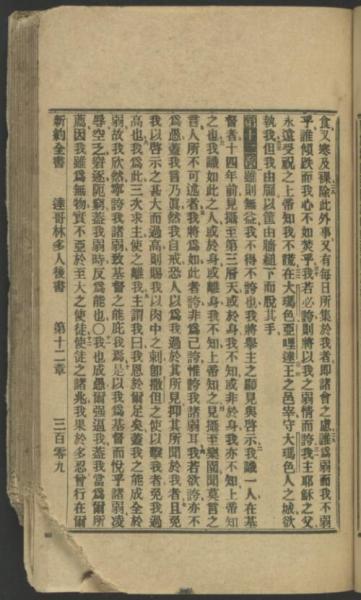 食又寒及裸除此外事又有每日所集於我者即諸會之慮誰爲弱而我不弱
乎誰傾跌而我心不如焚乎我若必誇則將以我之弱情而誇我主耶穌之父
永遠受祝之上帝知我不謊在大瑪色亞哩達王之邑宰守大瑪色人之城欲
執我但我由屬以筐由牆縋下而脫其手
第十二章雖則無益我不得不誇也我將舉主之顯見與啓示我識一人在基
督者十四年前見攝至第三層天或於身我不知或非於身我亦不知上帝知
之也我識如此之人或於身或離身我不知上帝知之見攝至樂園聞莫言之
言人所不可述者我將爲如此者誇非爲己誇惟誇我諸弱耳我若欲誇亦不
爲愚蓋我言乃眞然我自戒恐人以爲我過於其所見抑其所聞於我者且免
我以啓示之甚大而過高則賜我以肉中之刺卽撒但之使以擊我者免我過
高也我爲此三次求主使之離我主謂我曰我恩於爾足矣蓋我之能成全於
弱故我欣然寧誇我諸弱致基督之能庇我爲是以我爲基督而悅乎諸弱凌
辱空乏窘逐阨窮蓋我弱時反爲能也〇我也成愚爾强逼我蓋我當爲爾所
薦因我雖爲無物實不亞於至大之使徒使徒之諸兆我果於多忍曾行在爾
新約全書　達哥林多人後書　第十二章　三百零九